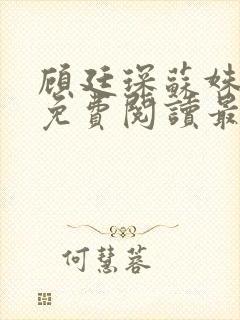 顧廷琛蘇妹
免費閱讀最
何慧蓉